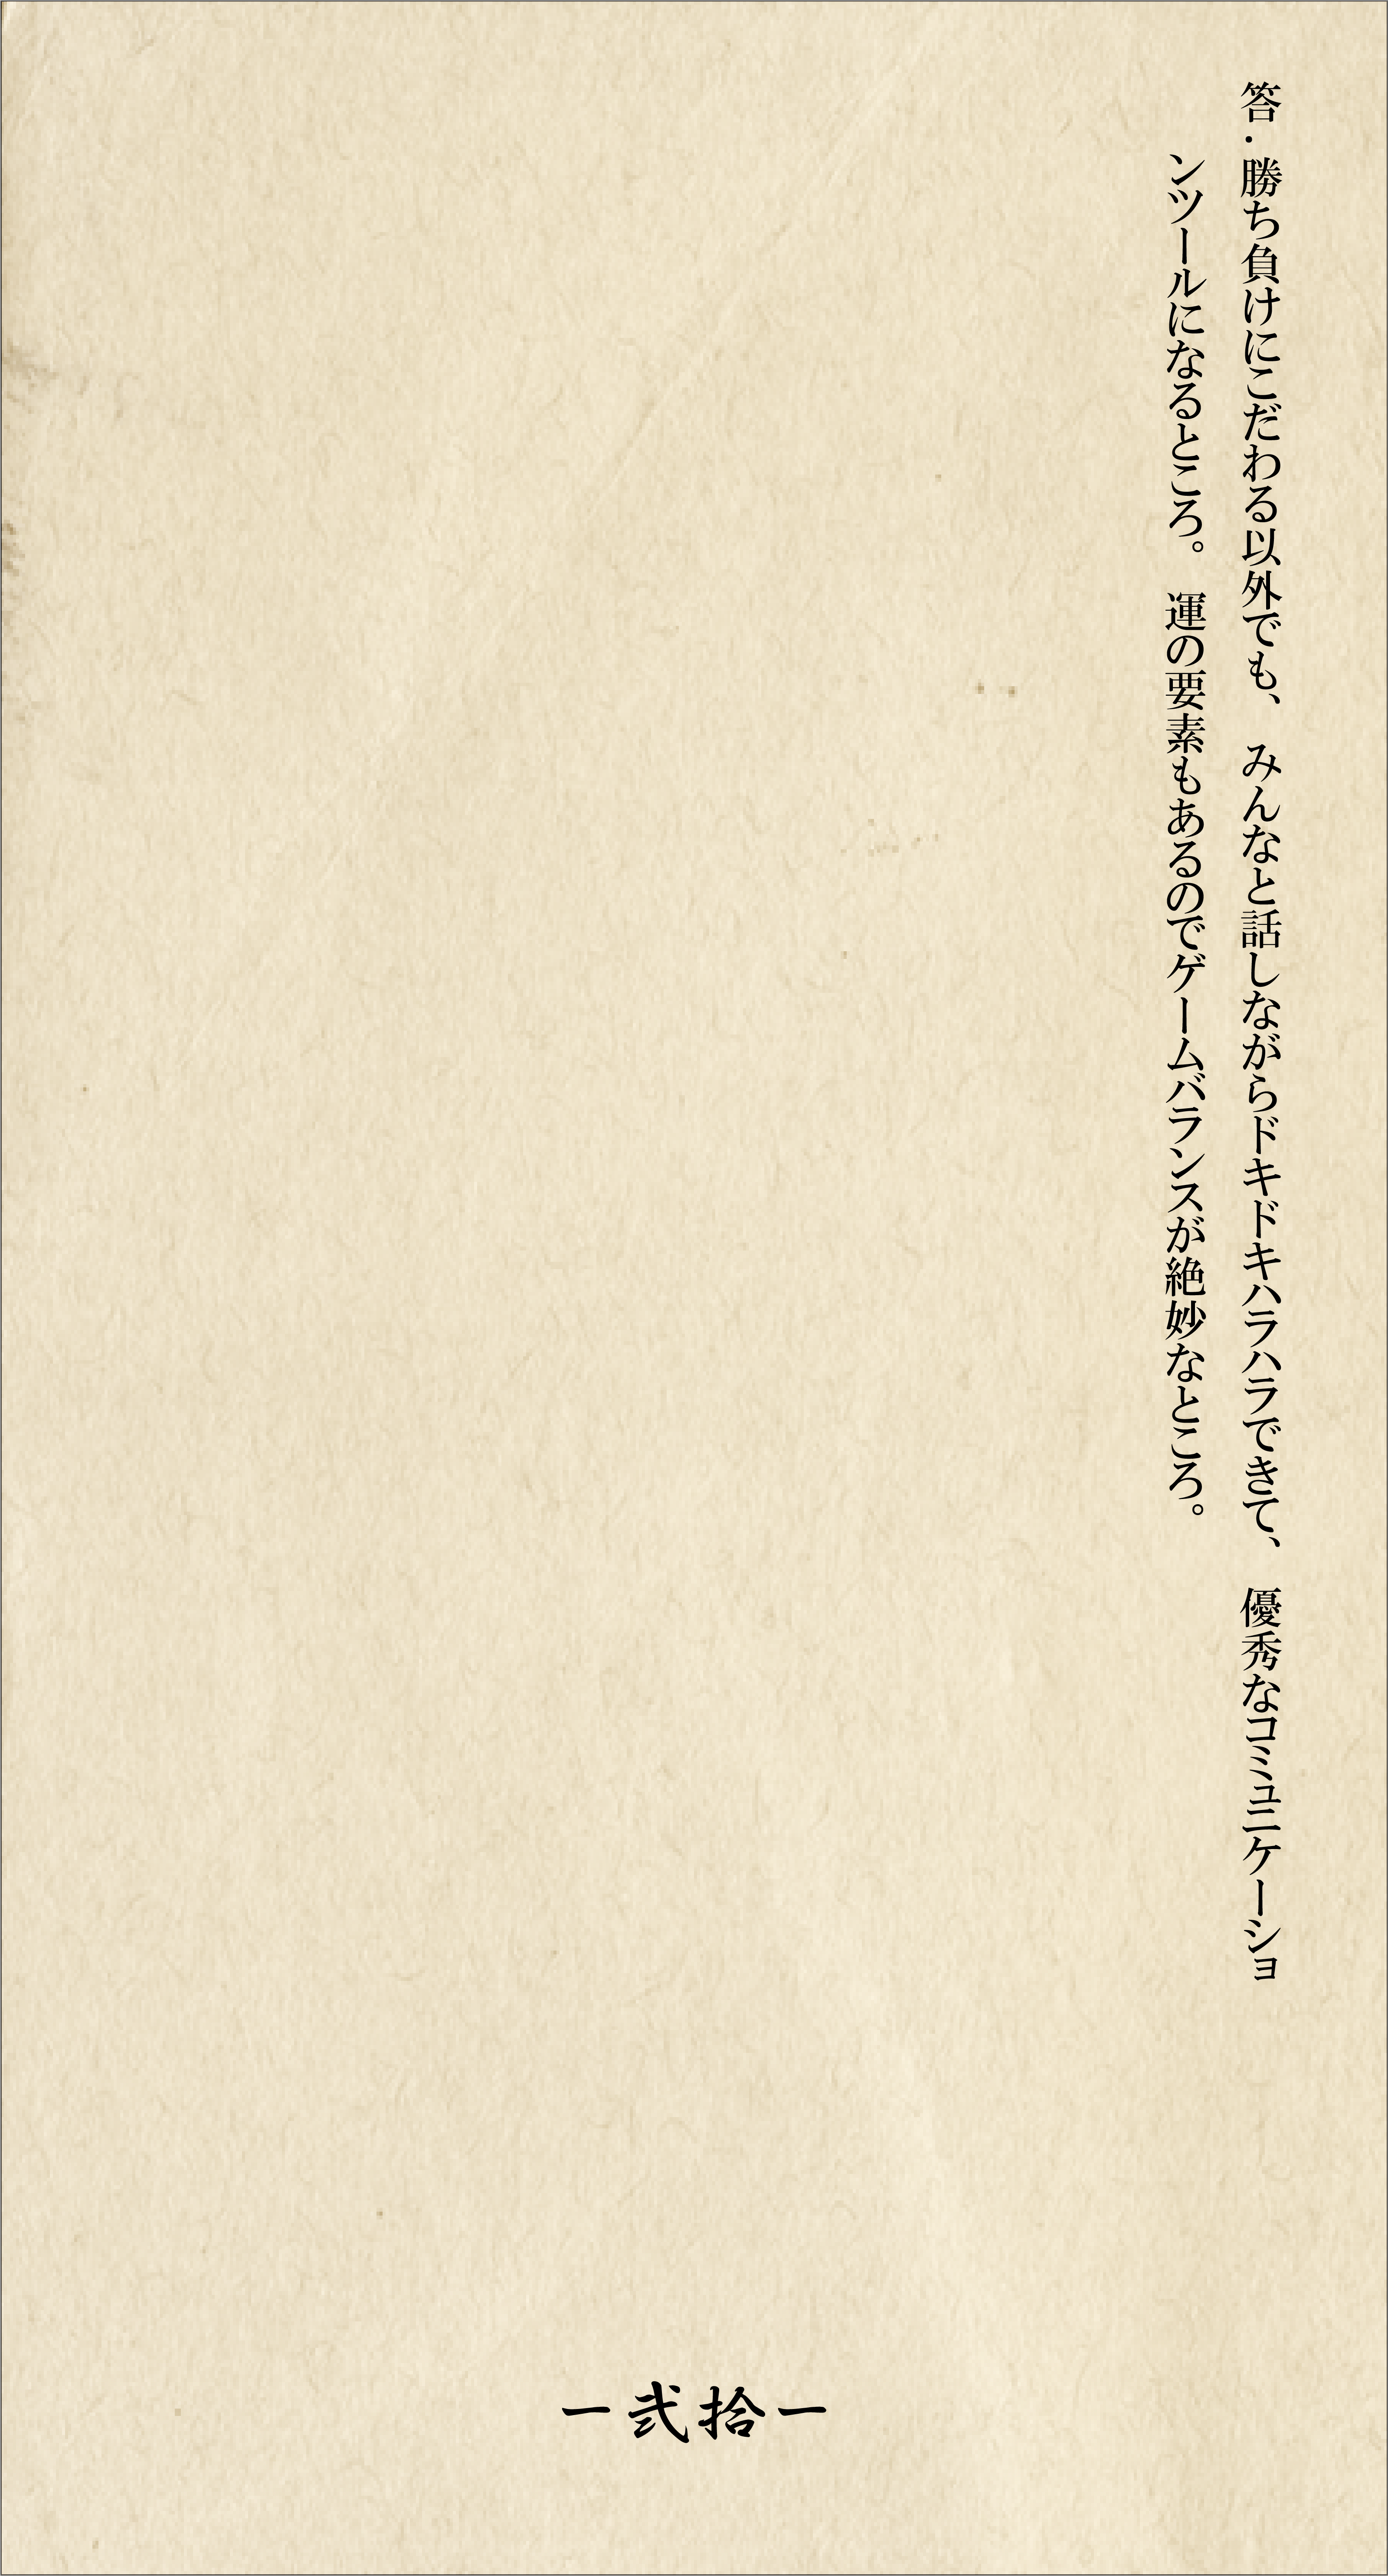 答．勝ち負けにこだわる以外でも、みんなと話しながらドキドキハラハラできて、優秀なコミュニケーショ
ンツールになるところ。運の要素もあるのでゲームバランスが絶妙なところ。
ー弐拾ー